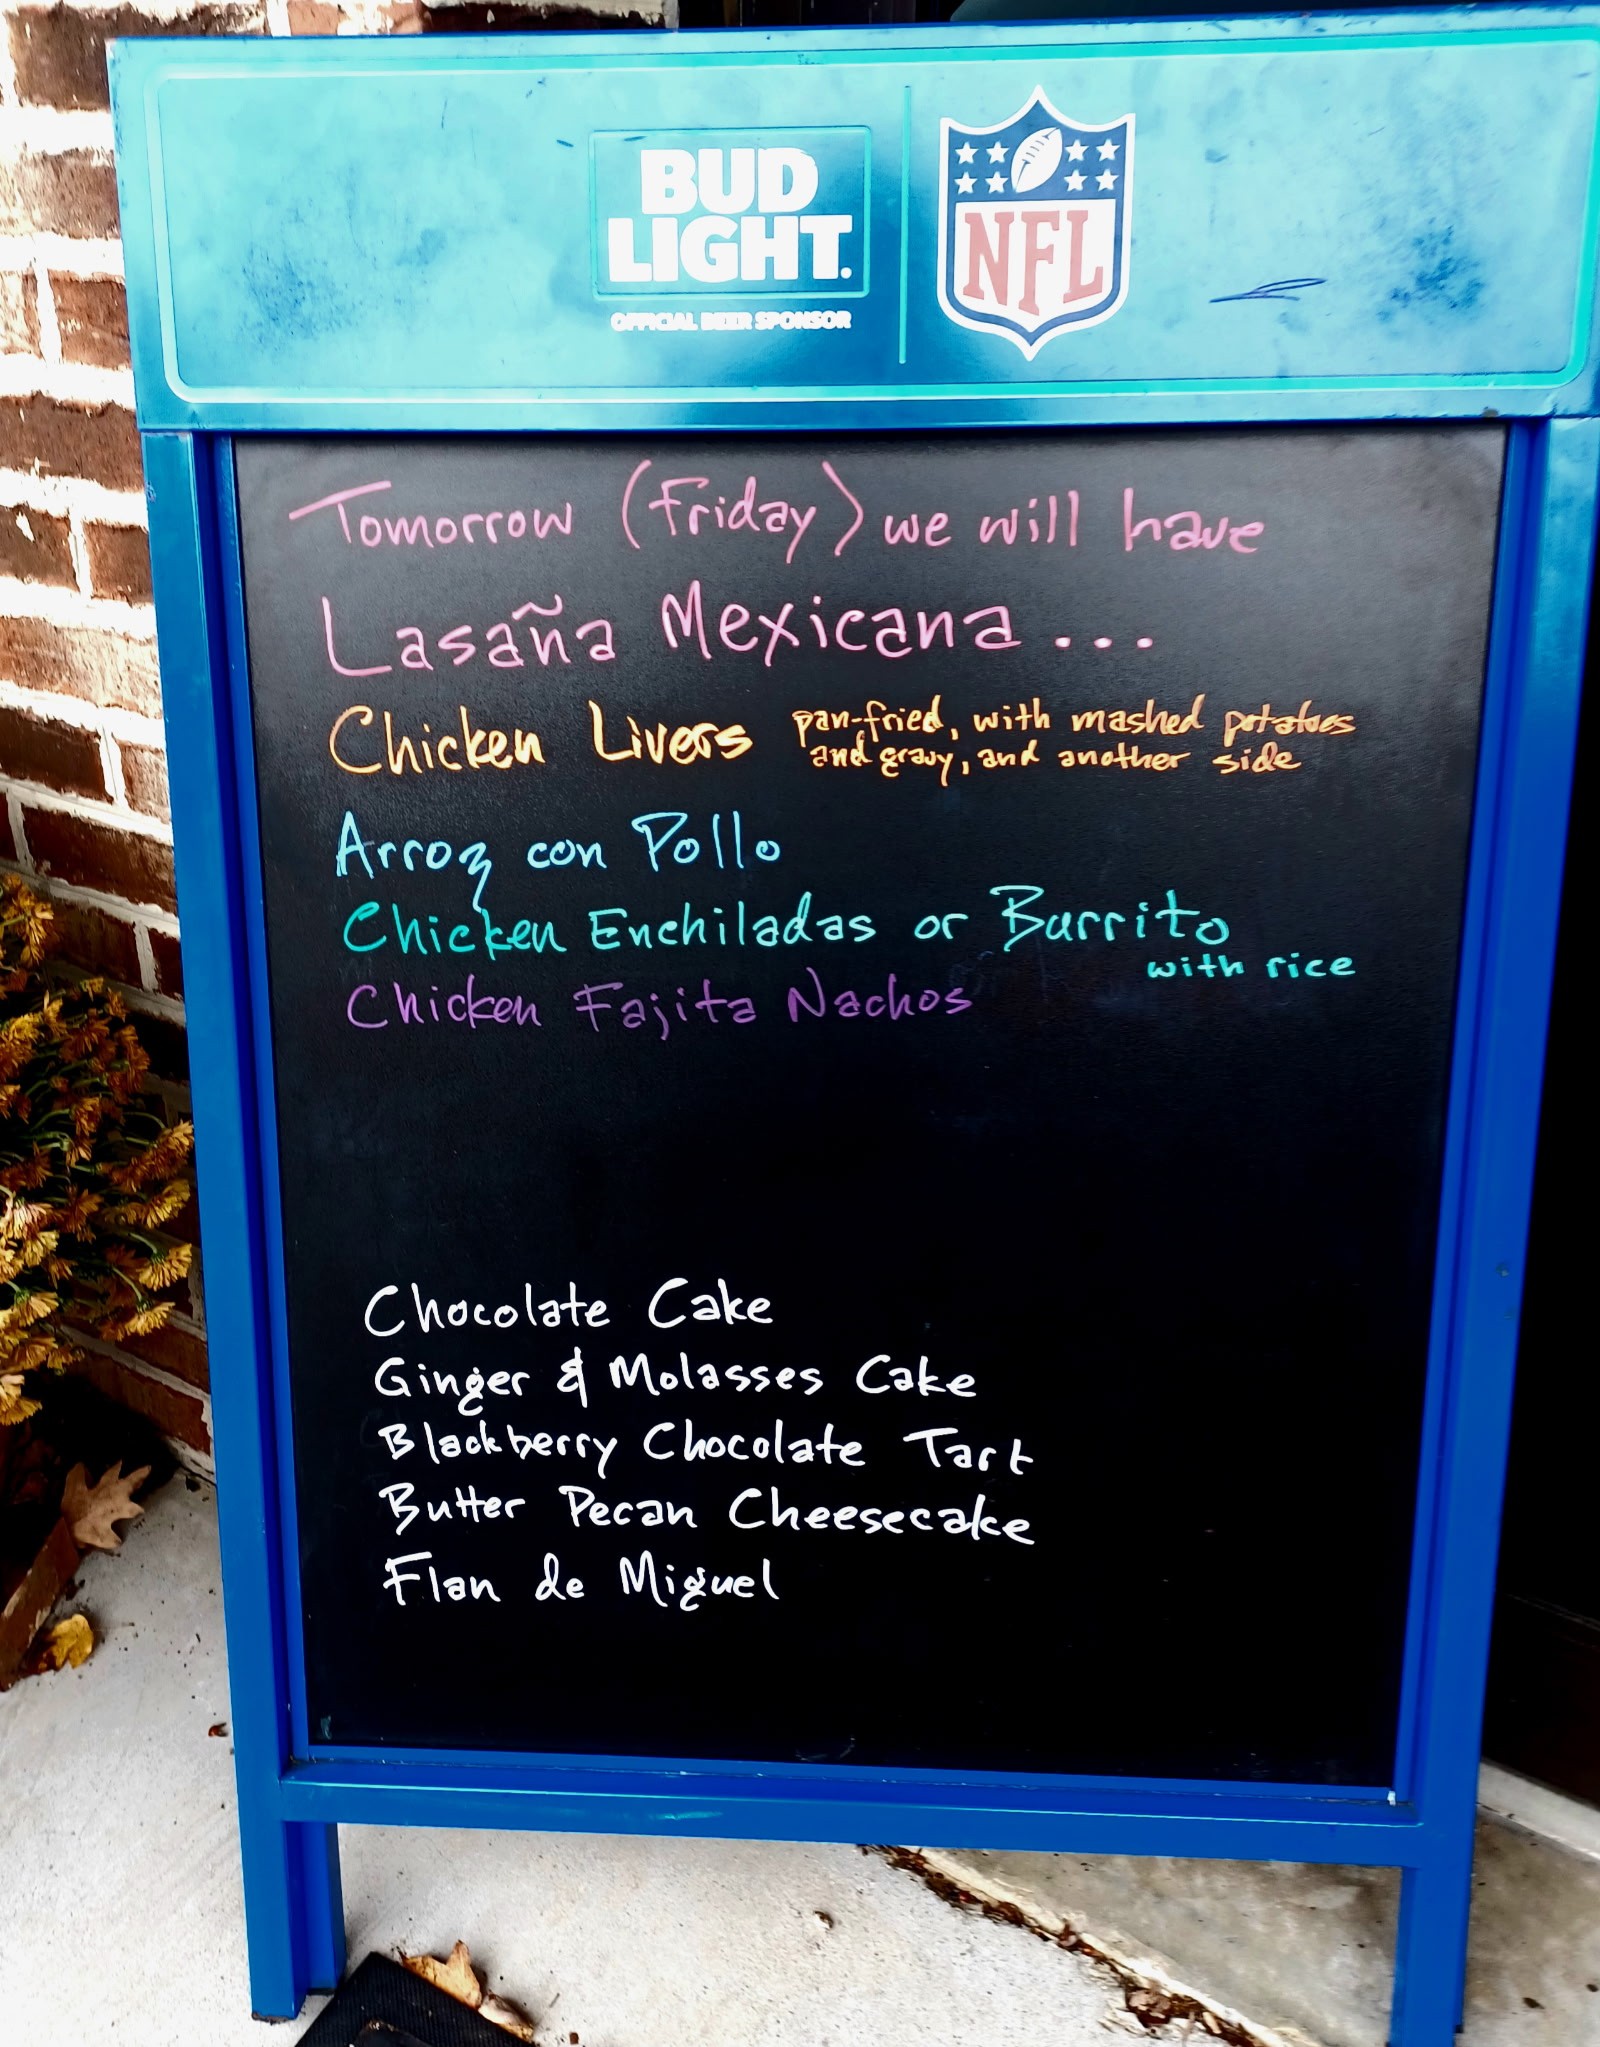 BUD
LIGHT.
OFFICIAL BEER SPONSOR
NFL
Tomorrow (Friday) we will have
Lasaña Mexicana...
Chicken Livers pan-fried, with mashed potatoes
and gravy, and another side
Arroz con Pollo
Chicken Enchiladas or Burrito
with rice
Chicken Fajita Nachos
Chocolate Cake
Ginger & Molasses Cake
Blackberry Chocolate Tart
Butter Pecan Cheesecake
Flan de Miguel